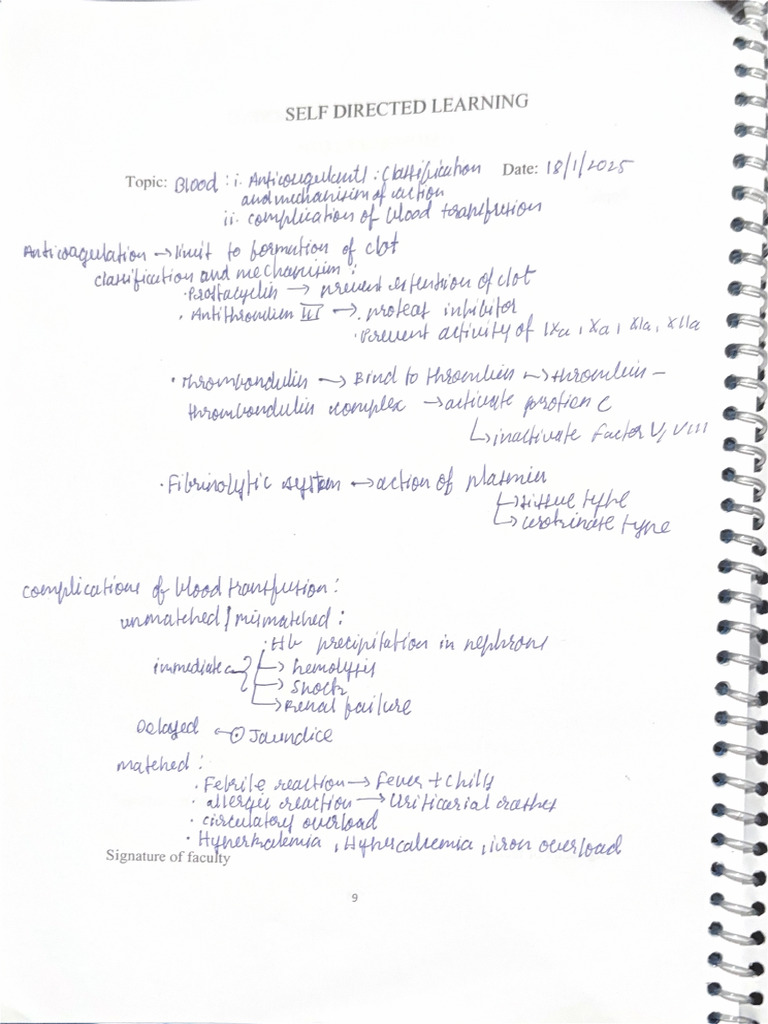 SELF DIRECTED LEARNING
Topic: Blood : i. Anticoagulants : Classification Date: 18/1/2025
and mechanisim of action
ii. complication of blood transfusion
Anticoagulation → limit to formation of clot
classification and mechanisim :
· Prostacyclin → prevent extension of clot
· Antithrombin III → · proteas inhibitor
· Prevent activity of IXa, Xa, XIa, XIIa
· Thrombondulin → Bind to thrombin → thrombin –
thrombondulin complex → activate protien C
↳ inactivate factor V, VIII
· Fibrinolytic system → action of plasmin
↳ tissue type
↳ urokinate type
complications of blood transfusion :
unmatched / mismatched :
· Hb precipitation in nephrons
immediate → hemolysis
→ Shock
→ Renal failure
Delayed Jaundice
matched :
· Febrile reaction → Fever + chills
· allergic reaction → Urticarial rashes
· circulatory overload
· Hyperkalemia, Hypercalcemia, iron overload
Signature of faculty
9